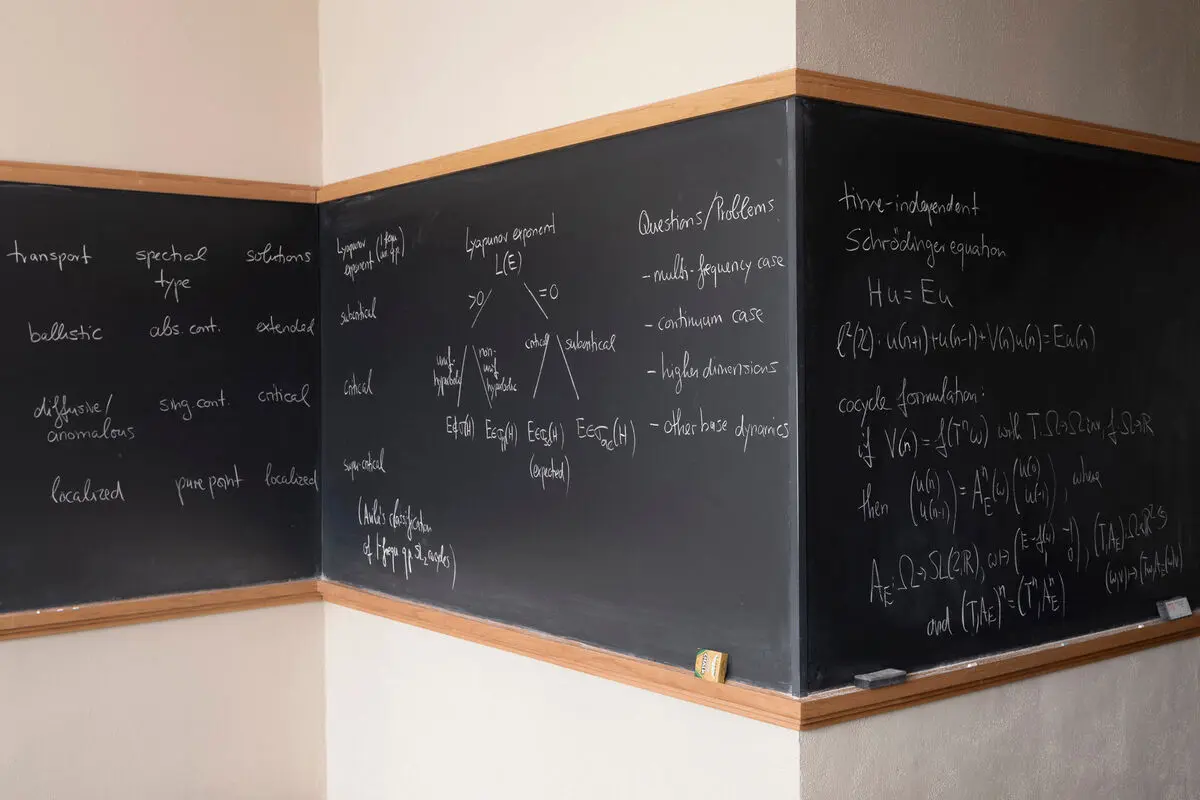 transport spectral type solutions
ballistic abs. cont. extended
diffusive/ anomalous sing. cont. critical
localized pure point localized
Lyapunov exponent (1 frequ. qp.)
subcritical
critical
supercritical
(Avila's classification
of 1-frequ qp SL₂ cocycles)
Lyapunov exponent
L(E)
>0 =0
unif. hyperbolic non-unif hyperbolic critical subcritical
E∉σ(H) E∈σpp(H) E∈σsc(H) E∈σac(H)
(expected)
Questions/Problems
- multi-frequency case
- continuum case
- higher dimensions
- other base dynamics
time-independent
Schrödinger equation
Hu = Eu
ℓ²(ℤ): u(n+1)+u(n-1)+V(n)u(n)=Eu(n)
cocycle formulation:
if V(n) = f(Tⁿω) with T:Ω→Ω inv, f:Ω→ℝ
then (u(n) u(n-1)) = Aⁿ_E(ω) (u(0) u(-1)), where
A_E: Ω→SL(2,ℝ), ω↦(E-f(ω) -1 1 0), (T,A_E): Ω×ℝ²
(ω,v)↦(Tω,A_E(ω)v)
and (T,A_E)ⁿ=(Tⁿ,Aⁿ_E)